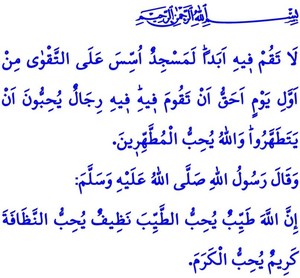 بِسْمِ اللهِ الرَّحْمٰنِ الرَّحِيمِ
لَا تَقُمْ فِيهِ اَبَدًاۜ لَمَسْجِدٌ اُسِّسَ عَلَى التَّقْوٰى مِنْ
اَوَّلِ يَوْمٍ اَحَقُّ اَنْ تَقُومَ فِيهِۜ فِيهِ رِجَالٌ يُحِبُّونَ اَنْ
يَتَطَهَّرُواۜ وَاللهُ يُحِبُّ الْمُطَّهِّرِينَ.
وَقَالَ رَسُولُ اللهِ صَلَّى اللهُ عَلَيْهِ وَسَلَّمَ:
إِنَّ اللَّهَ طَيِّبٌ يُحِبُّ الطَّيِّبَ نَظِيفٌ يُحِبُّ النَّظَافَةَ
كَرِيمٌ يُحِبُّ الْكَرَمَ.